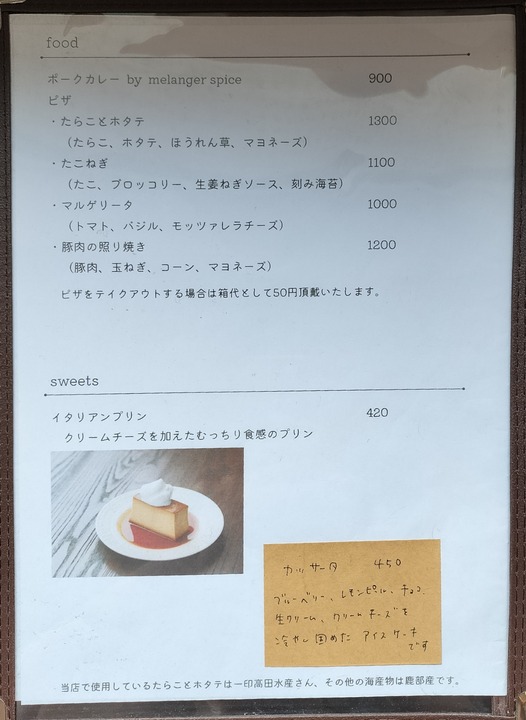 food
ポークカレー by melanger spice 900
ピザ
・たらことホタテ 1300
（たらこ、ホタテ、ほうれん草、マヨネーズ）
・たこねぎ 1100
（たこ、ブロッコリー、生姜ねぎソース、刻み海苔）
・マルゲリータ 1000
（トマト、バジル、モッツァレラチーズ）
・豚肉の照り焼き 1200
（豚肉、玉ねぎ、コーン、マヨネーズ）
ピザをテイクアウトする場合は箱代として50円頂戴いたします。
sweets
イタリアンプリン 420
クリームチーズを加えたむっちり食感のプリン
カッサータ 450
ブルーベリー、レモンピール、チョコ
生クリーム、クリームチーズを
冷やし固めた アイスケーキ
です
当店で使用しているたらことホタテは一印高田水産さん、その他の海産物は鹿部産です。